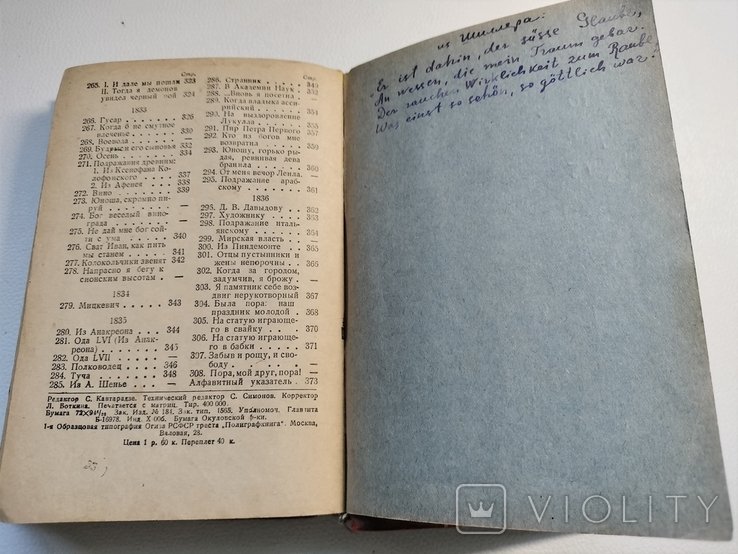 Стр.
265. I. И дале мы пошли 323
II. Тогда я демонов
увидел черный рой 324
1833
266. Гусар . . . . . 326
267. Когда б не смутное
влеченье . . . . 330
268. Воевода . . . . —
269. Будрыс и его сыновья 332
270. Осень . . . . . 334
271. Подражания древним:
1. Из Ксенофана Ко-
лофонского . . . 337
2. Из Афенея . . . 338
272. Вино . . . . . 339
273. Юноша, скромно пи-
руй . . . . . . —
274. Бог веселый вино-
града . . . . . —
275. Не дай мне бог сой-
ти с ума . . . . 340
276. Сват Иван, как пить
мы станем . . . 341
277. Колокольчики звенят 342
278. Напрасно я бегу к
сионским высотам . —
1834
279. Мицкевич . . . . 343
1835
280. Из Анакреона . . . 344
281. Ода LVI (Из Анак-
реона) . . . . . 345
282. Ода LVII . . . . —
283. Полководец . . . 346
284. Туча . . . . . 348
285. Из А. Шенье . . . —
Стр.
286. Странник . . . . 349
287. В Академии Наук . —
288. ..Вновь я посетил . —
289. Когда владыка асси-
рийский . . . .
290. На выздоровление
Лукулла . . . . 355
291. Пир Петра Первого 357
292. Кто из богов мне
возвратил . . .
293. Юношу, горько ры-
дая, ревнивая дева
бранила . . . . 360
294. От меня вечор Леила. —
295. Подражание араб-
скому . . . . . 361
1836
296. Д. В. Давыдову . . 362
297. Художнику . . . 363
298. Подражание италь-
янскому . . . . 364
299. Мирская власть . . —
300. Из Пиндемонте . . 365
301. Отцы пустынники и
жены непорочны . . 366
302. Когда за городом,
задумчив, я брожу . —
303. Я памятник себе воз-
двиг нерукотворный 367
304. Была пора: наш
праздник молодой . 368
305. На статую играюще-
го в свайку . . . 370
306. На статую играюще-
го в бабки . . . 371
307. Забыв и рощу, и сво-
боду . . . . . . —
308. Пора, мой друг, пора! —
Алфавитный указатель . 373
Редактор С. Кантарадзе. Технический редактор С. Симонов. Корректор
Л. Боткина. Печатается с матриц. Тир. 400 000.
Бумага 72×94¹/₃₂ Зак. Изд. № 184. Зак. тип. 1565. Уполномоч. Главлита
Б-16978. Инд. Х 00б. Бумага Окуловской ф-ки.
1-я Образцовая типография Огиза РСФСР треста „Полиграфкнига“. Москва,
Валовая, 28.
Цена 1 р. 60 к. Переплет 40 к.
из Шиллера:
"Er ist dahin, der süsse Glaube,
An wesen, die mein Traum gebar.
Der rauchen Wirklichkeit zum Raube,
Was einst so schön, so göttlich war!"
VIOLITY